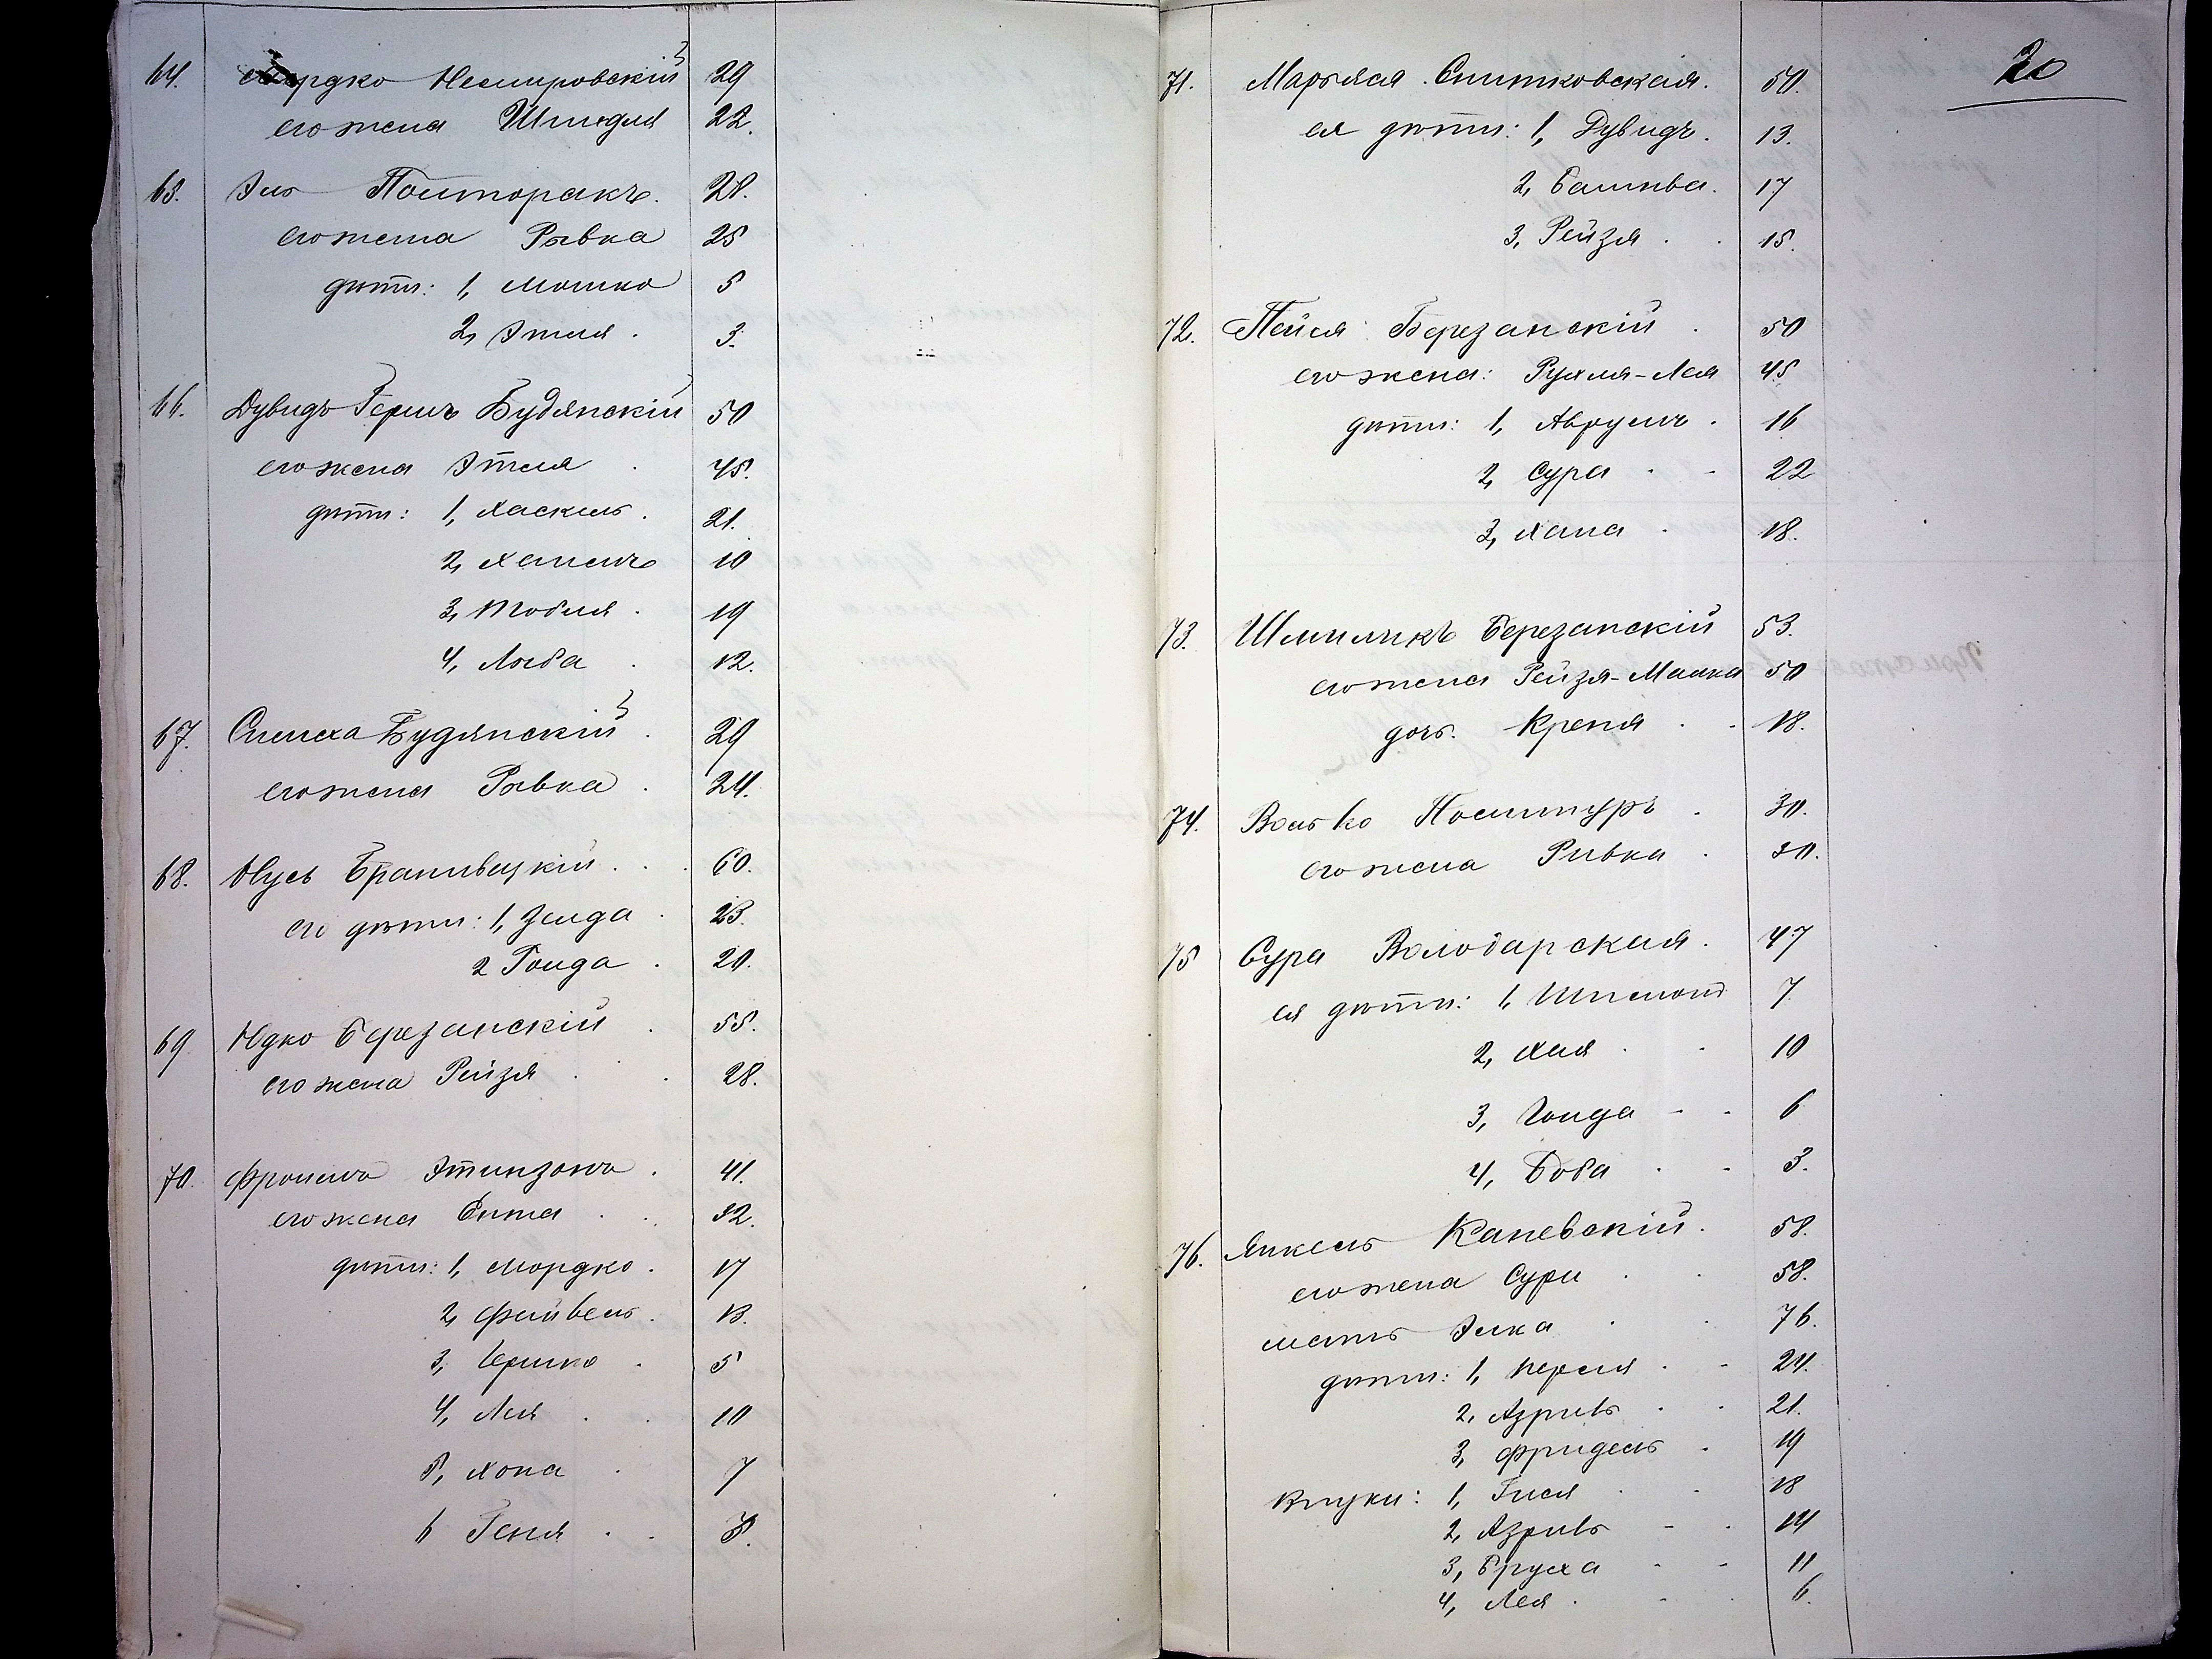 64. Мордко Немировскій 29
его жена Шпидля 22.
65. Эль Полторакъ. 28.
его жена Рывка 25
дѣти: 1, Мошко 5
2, Этля. 3.
66. Дувидъ Гершъ Будянскій 50
его жена Этля 45.
дѣти: 1, Хаскель. 21.
2, Хаимъ 10
3, Тобля. 19
4, Люба 12.
67. Симха Будянскій. 29
его жена Рывка. 24.
68. Нусь 60.
его дѣти: 1, Зелда 23.
2 Голда. 20.
69. Юдко Березанскій. 55.
его жена Рейзя. 28.
70. Фроимъ Этинзонъ. 41.
его жена Ента. 32.
дѣти: 1, Мордко. 17
2, Файвель. 13.
3, Гершко. 5
4, Лея. 10
5, Хона. 7
6 Геня. 3.
20
71. Марьяся Снитковская. 50.
ея дѣти: 1, Дувидъ. 13.
2, Башива. 17
3, Рейзя. 15.
72. Пейся Березанскій. 50
его жена: Рухля-Лея 45
дѣти: 1, Аврумъ. 16
2, Сура 22
3, Хана. 18.
73. Шмиликъ Березанскій 53.
его жена Рейзя-Малка 50
дочь. Креня 18.
74. Волько 30.
его жена Ривка. 30.
75 Сура Володарская. 47
ея дѣти: 1, 7
2, Хая 10
3, Голда 6
4, Боба 3.
76. Янкель Каневскій. 58.
его жена Сура 58.
мать Элка 76.
дѣти: 1, Перля 24.
2, Азриль 21.
3, Фридель 19
Внуки: 1, Гися 18
2, Азриль 14
3, Бруха 11
4, Лея. 6.